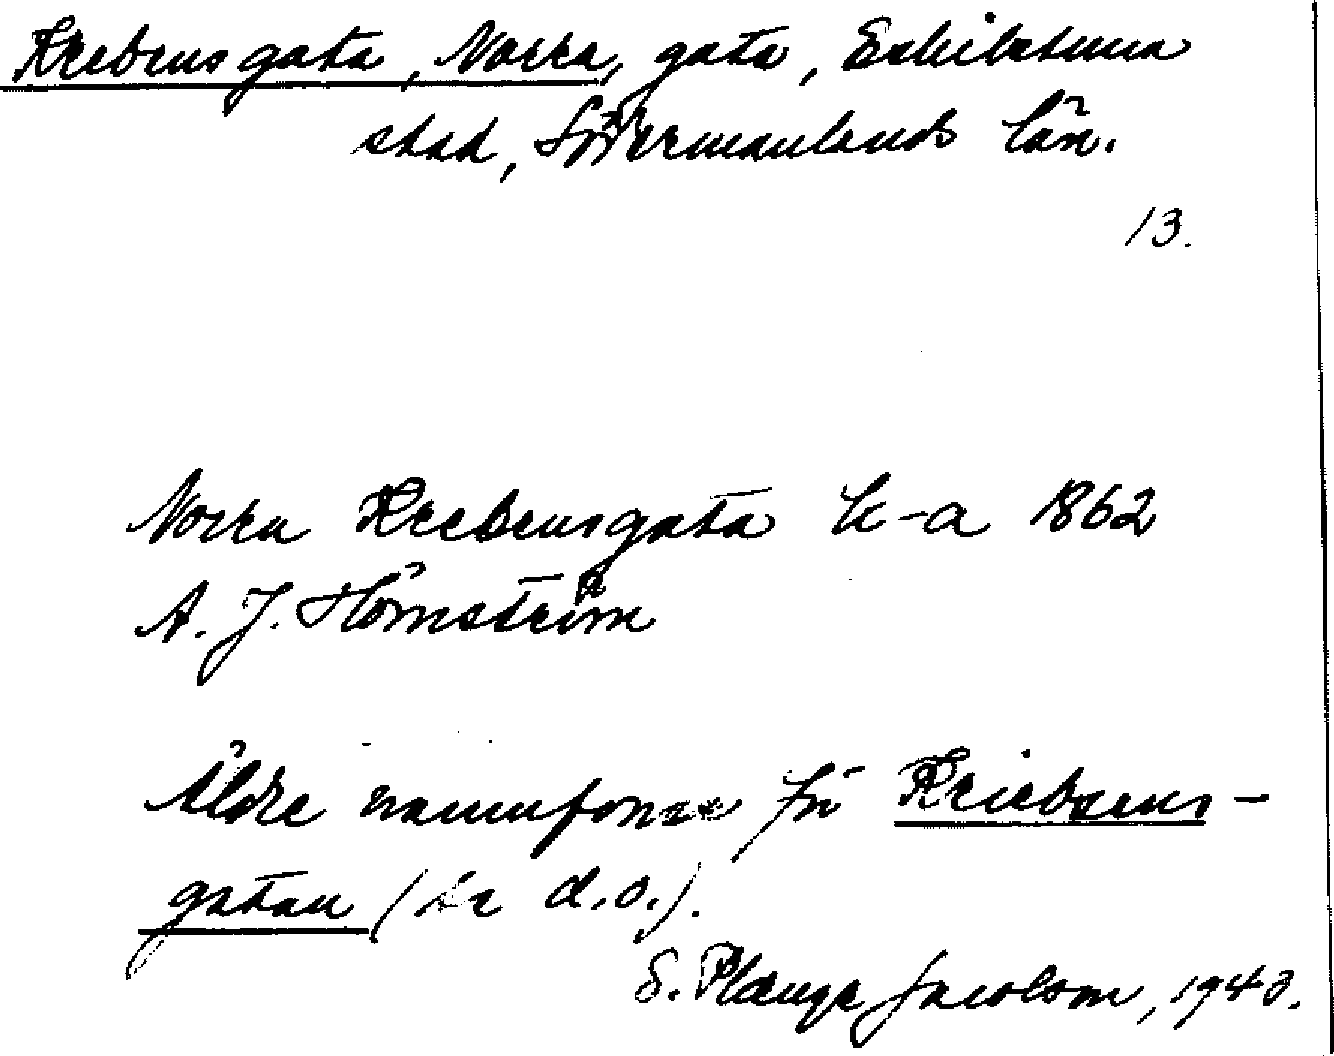 Kreebensgata, Norra, gata, Eskilstuna
stad, Södermanlands län.
13.
Norra Kreebensgata k-a 1862
A. J. Hörnström
Äldre namnform för Kriebsens-
gatan (se d.o.).
S. Plænge Jacobson, 1940.